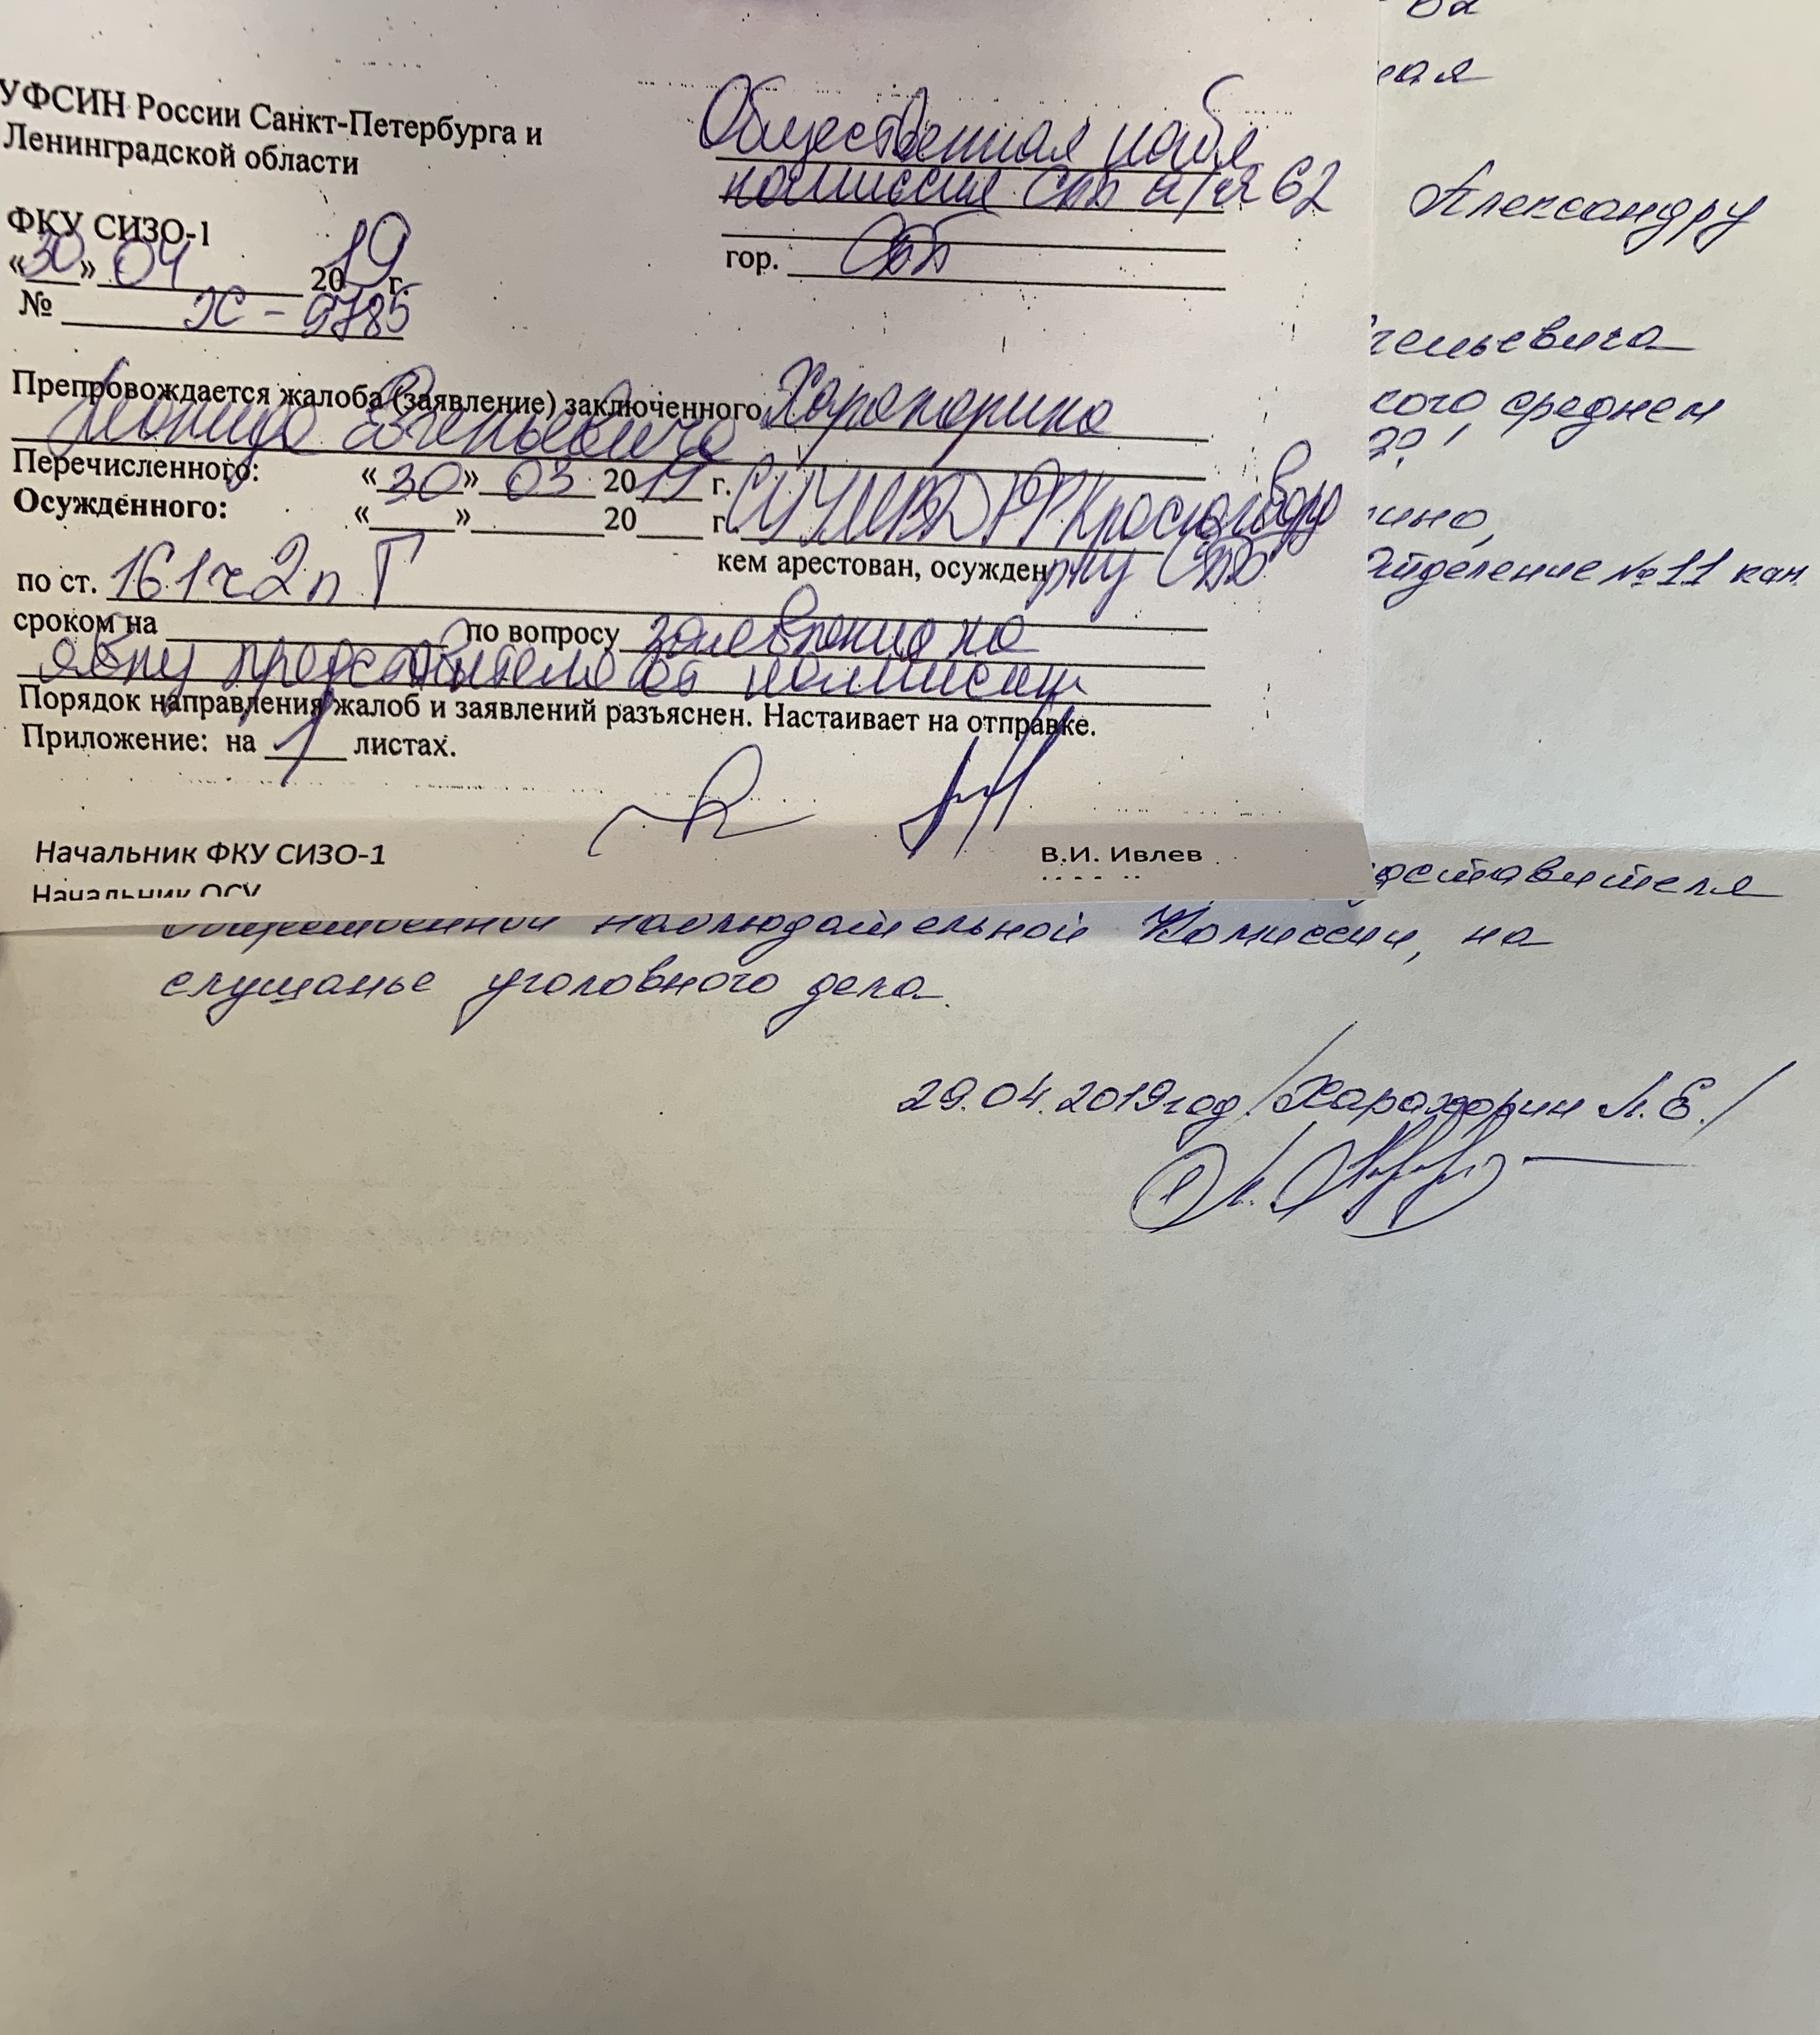 УФСИН России Санкт-Петербурга и
Ленинградской области
ФКУ СИЗО-1
«30» 04 2019 г.
№ Х-9785
Общественная набл
комиссия СПБ а/я 62
гор. СПБ
Препровождается жалоба (заявление) заключенного Харахорина
Леонида Евгеньевича
Перечисленного: «30» 03 2019 г. СУ УМВД РФ Красногвард
Осужденного: «___» ___ 20___ г.
кем арестован, осужден р-ну СПБ
по ст. 161 ч 2 п Г
сроком на ___ по вопросу заявления на
явку представителя от комиссии
Порядок направления жалоб и заявлений разъяснен. Настаивает на отправке.
Приложение: на 1 листах.
Начальник ФКУ СИЗО-1 В.И. Ивлев
Начальник ОСУ
62
ная
Александру
геньевича
кого среднем
ино,
отделение №11 кам.
дставителя
общественной наблюдательной Комиссии, на
слушанье уголовного дела.
29.04.2019 год /Харахорин Л.Е./